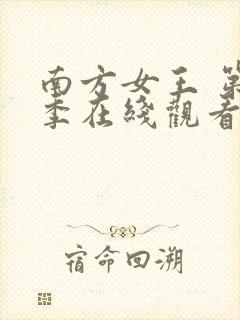 南方女王 第
季在綫觀看
宿命回溯